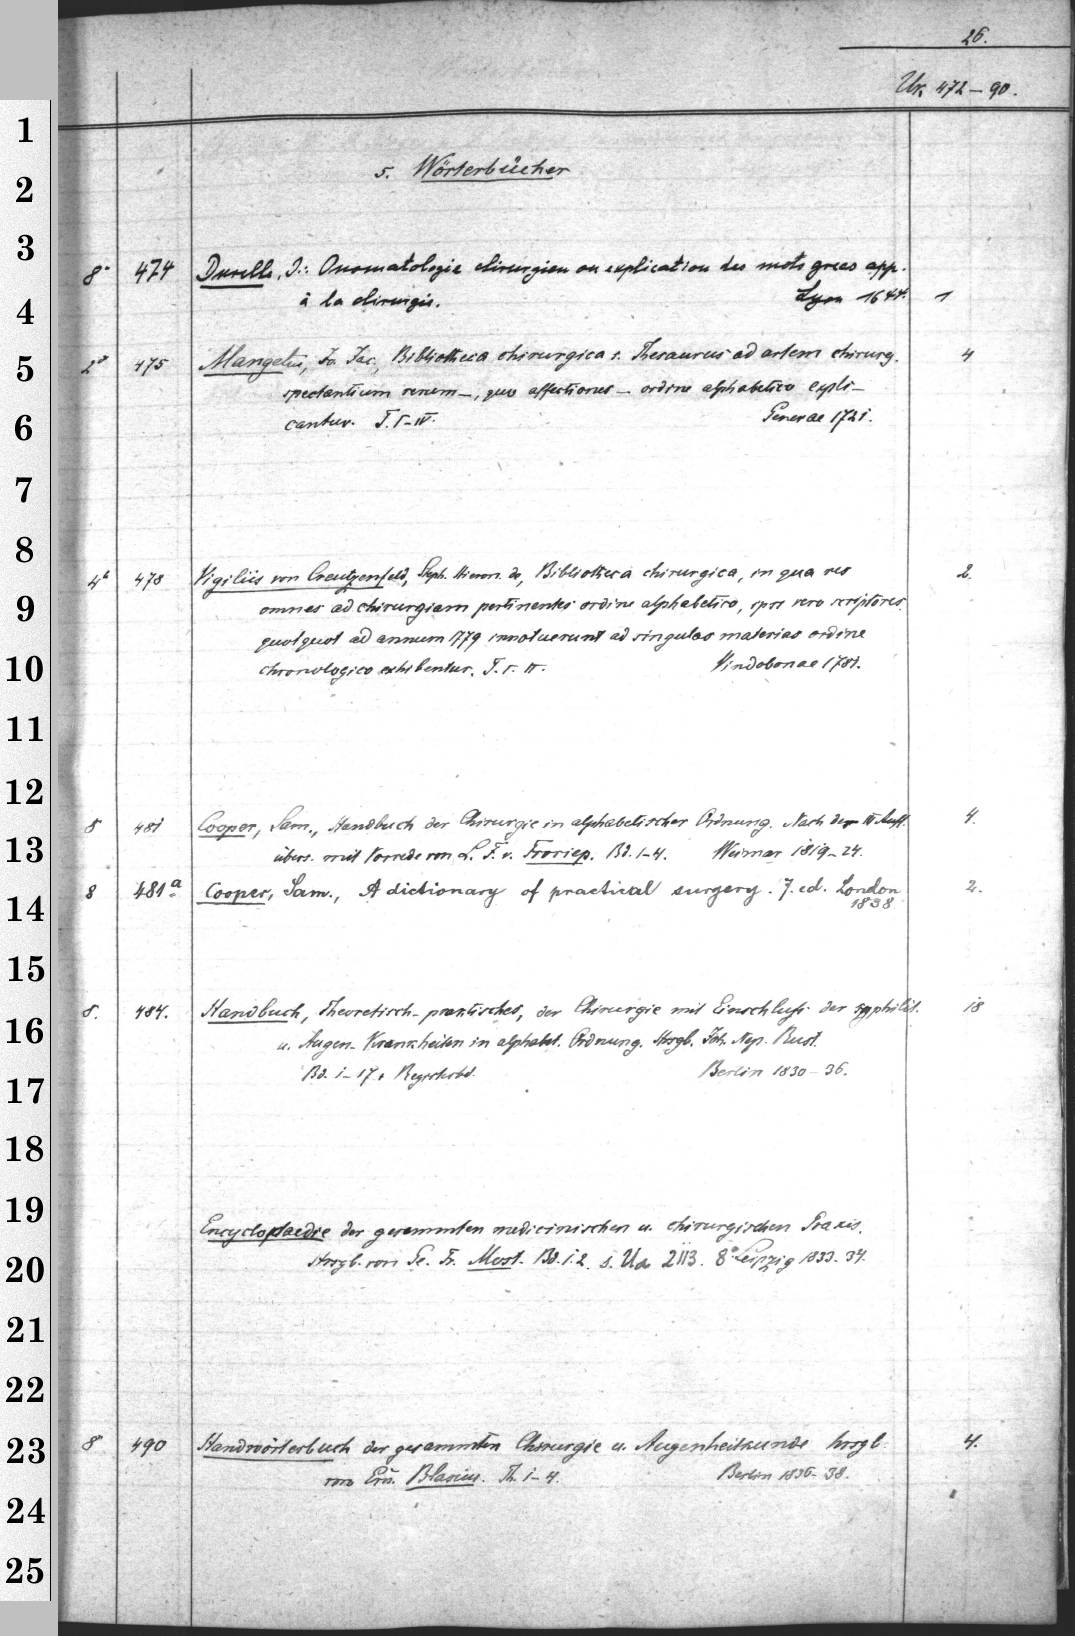 26.
Uk 472-90.
1
2
5. Wörterbücher
3
8° 474 Durelle, J.: Onomatologie chirurgien ou explication des mots grecs app.
4
à la chirurgie. Lyon 1644. 1
5
2° 475 Mangetus, Jo. Jac., Bibliotheca chirurgica s. Thesaurus ad artem chirurg. 4
spectantium rerum —, quo affectiones — ordine alphabetico expli-
6
cantur. T. I-IV. Genevae 1721.
7
8
4° 478 Vigiliis von Creutzenfeld, Steph. Hieron. de, Bibliotheca chirurgica, in qua res 2.
9
omnes ad chirurgiam pertinentes ordine alphabetico, ipsi vero scriptores,
quotquot ad annum 1779 innotuerunt ad singulas materias ordine
10
chronologico exhibentur. T. I. II. Vindobonae 1781.
11
12
8 481 Cooper, Sam., Handbuch der Chirurgie in alphabetischer Ordnung. Nach der III Aufl. 4.
13
übers. mit Vorrede von L. F. v. Froriep. Bd. 1-4. Weimar 1819-24.
14
8 481a Cooper, Sam., A dictionary of practical surgery. 7. ed. London 2.
1838
15
8. 484. Handbuch, Theoretisch-praktisches, der Chirurgie mit Einschluss der syphilit. 18
16
u. Augen-Krankheiten in alphabet. Ordnung. Hrsgb. Joh. Nep. Rust.
17
Bd. 1-17 + Registerbd. Berlin 1830-36.
18
19
Encyclopaedie der gesammten medicinischen u. chirurgischen Praxis.
20
Hrsgb. von Ge. Fr. Most. Bd. 1.2. s. Ua 2113. 8° Leipzig 1833-34.
21
22
23
8° 490 Handwörterbuch der gesammten Chirurgie u. Augenheilkunde hrsgb. 4.
von Ern. Blasius. Th. 1-4. Berlin 1836-38.
24
25